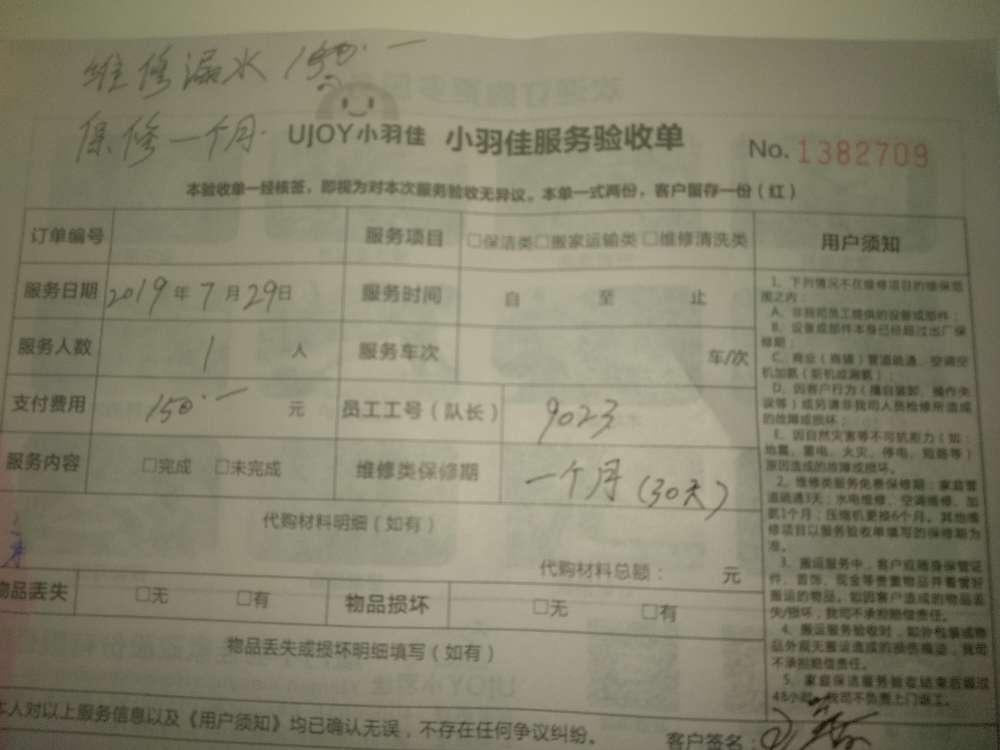 维修漏水 150.一
保修一个月.
UJOY小羽佳 小羽佳服务验收单 No. 1382709
本验收单一经核签，即视为对本次服务验收无异议。本单一式两份，客户留存一份（红）
订单编号 服务项目 □保洁类□搬家运输类□维修清洗类
服务日期 2019年7月29日 服务时间 自 至 止
服务人数 1 人 服务车次 车/次
支付费用 150.一 元 员工工号（队长） 9023
服务内容 □完成 □未完成 维修类保修期 一个月（30天）
代购材料明细（如有）
代购材料总额： 元
物品丢失 □无 □有 物品损坏 □无 □有
物品丢失或损坏明细填写（如有）
本人对以上服务信息以及《用户须知》均已确认无误，不存在任何争议纠纷。
客户签名：
用户须知
1、下列情况不在维修项目的维保范
围之内：
A、非我司员工提供的设备或部件；
B、设备或部件本身已经超过出厂保
修期；
C、商业（商铺）管道疏通、空调空
机加氨（新机或漏氨）；
D、因客户行为（擅自装卸、操作失
误等）或另请非我司人员检修所造成
的故障或损坏；
E、因自然灾害等不可抗能力（如：
地震、雷电、火灾、停电、短路等）
原因造成的故障或损坏。
2、维修类服务免费保修期：家庭管
道疏通3天；水电维修、空调维修、加
氨1个月；压缩机更换6个月。其他维
修项目以服务验收单填写的保修期为
准。
3、搬运服务中，客户应随身保管证
件、首饰、现金等贵重物品并看管好
搬运的物品。如因客户造成的物品丢
失/损坏，我司不承担赔偿责任。
4、搬运服务验收时，如外包装或物
品外观无搬运造成的损伤痕迹，我司
不承担赔偿责任。
5、家庭保洁服务验收结束后超过
48小时，我司不负责上门返工。